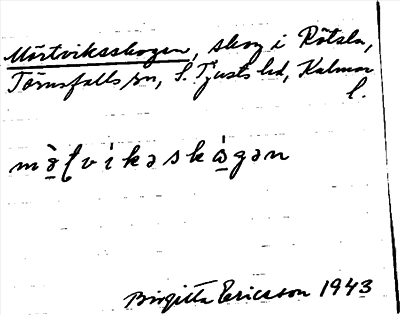 Mörtviksskogen, skog i Rötsla,
Törnsfalls sn, S. Tjusts hd, Kalmar
l.
mö̀ʈvi´kəskὼgən
Birgitta Ericsson 1943